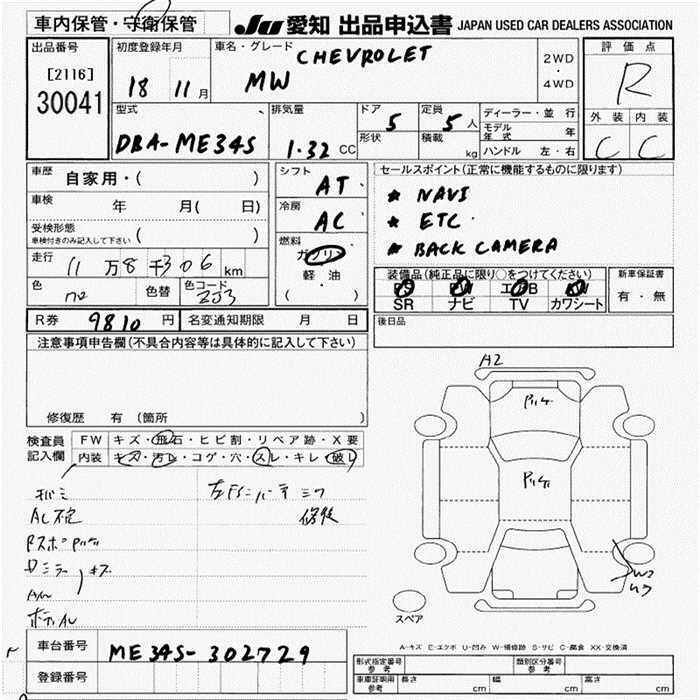 車内保管・守衛保管
JU 愛知 出品申込書 JAPAN USED CAR DEALERS ASSOCIATION
出品番号
[2116]
30041
初度登録年月
18 11月
車名・グレード
CHEVROLET
MW
2WD
・
4WD
評価点
R
外装 内装
C C
型式
DBA-ME34S
排気量
1.32 CC
ドア 5
形状
定員 5人
積載 kg
ディーラー・並行
モデル年式 年
ハンドル 左・右
車歴 自家用・( )
車検 年 月( 日)
受検形態
車検付きのみ記入して下さい ( )
走行 11万8千306km
色
色替
色コード
ZJ3
シフト
AT
冷房
AC
燃料
ガソリン
軽・油
( ・ )
セールスポイント(正常に機能するものに限ります)
* NAVI
* ETC
* BACK CAMERA
装備品(純正品に限り○をつけてください)
SR ナビ TV カワシート
新車保証書
有・無
R券 9810円
名変通知期限 月 日
後日品
注意事項申告欄(不具合内容等は具体的に記入して下さい)
修復歴 有 (箇所 )
検査員
記入欄
FW キズ・飛石・ヒビ割・リペア跡・X要
内装 キズ・汚レ・コゲ・穴・スレ・キレ・破レ
AC不定
キズ
修後
A2
W2
スペア
A-キズ E-エクボ U-凹み W-補修跡 S-サビ C-腐食 XX-交換済
車台番号 ME34S-302729
登録番号
型式指定番号
参考
類別区分番号
参考
車庫証明用
参考
長さ cm
幅 cm
高さ cm